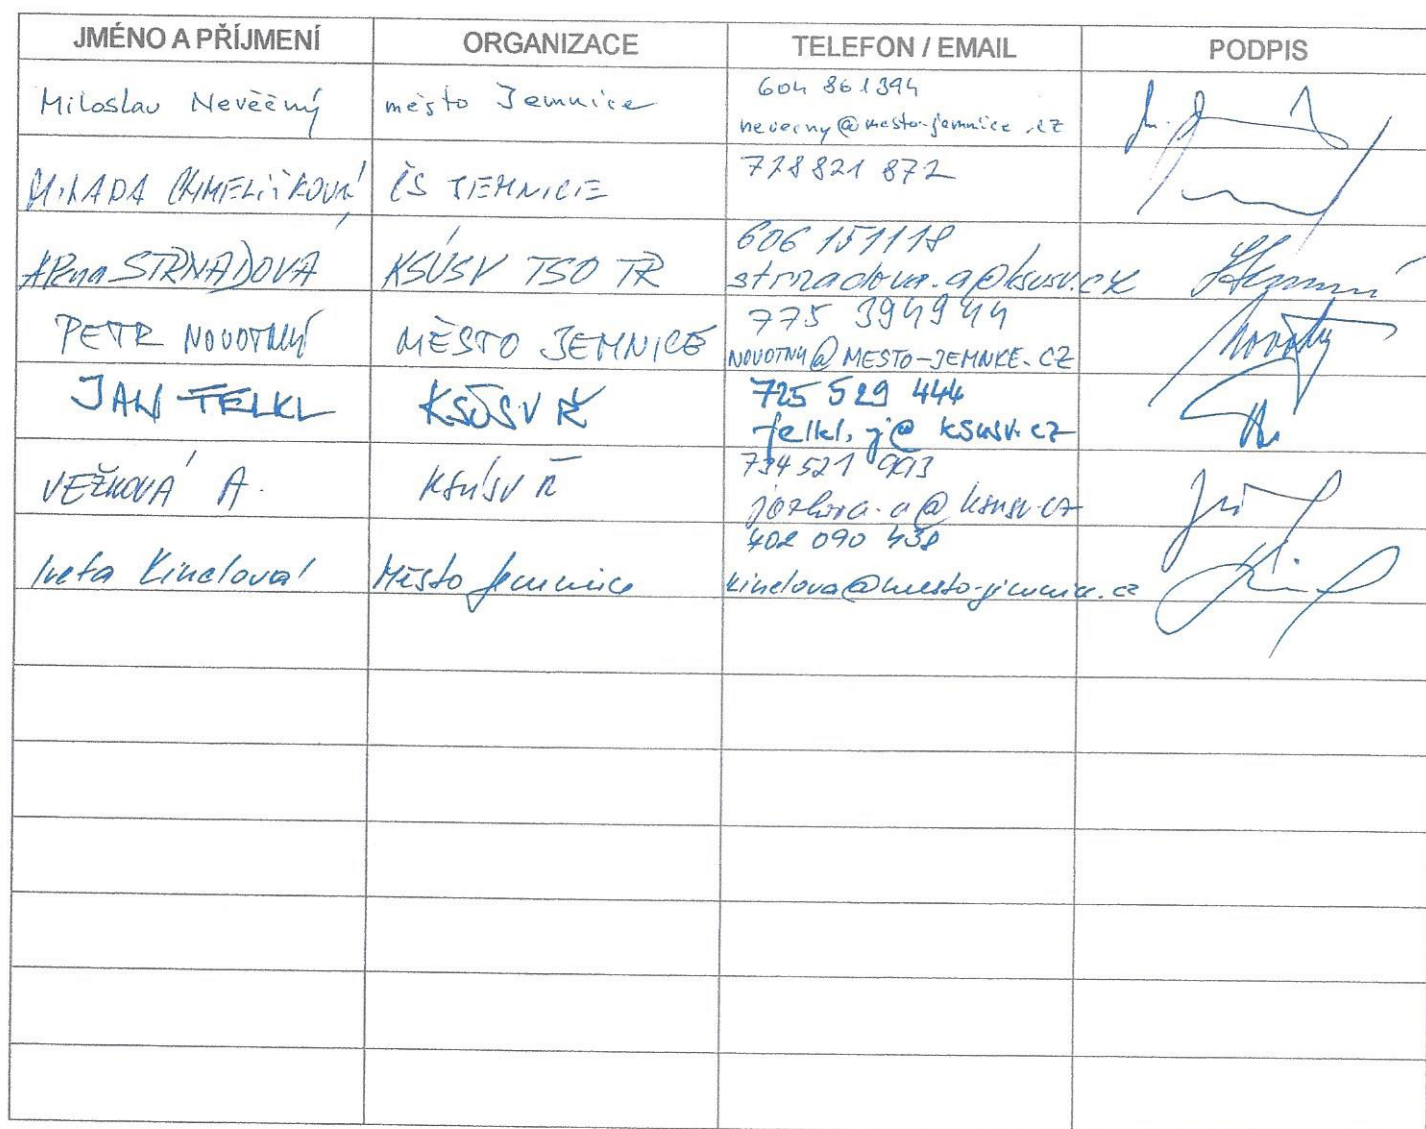 JMÉNO A PŘÍJMENÍ ORGANIZACE TELEFON / EMAIL PODPIS
Miloslav Nevěčný město Jemnice 604 861394
neverny@mesto-jemnice.cz
MILADA CHMELÍČKOVÁ ČS JEMNICE 728 821 872
Alena STRNADOVÁ KSÚSV TSO TR 606 151118
strnadova.a@ksusv.cz
PETR NOVOTNÝ MĚSTO JEMNICE 775 394944
NOVOTNY@MESTO-JEMNICE.CZ
JAN FELKL KSÚSV Ř 725 529 444
felkl.j@ksusv.cz
VEŽKOVÁ A. KSÚSV Ř 734 521
Iveta Kinclová Město Jemnice 402 090 438
kinclova@mesto-jemnice.cz